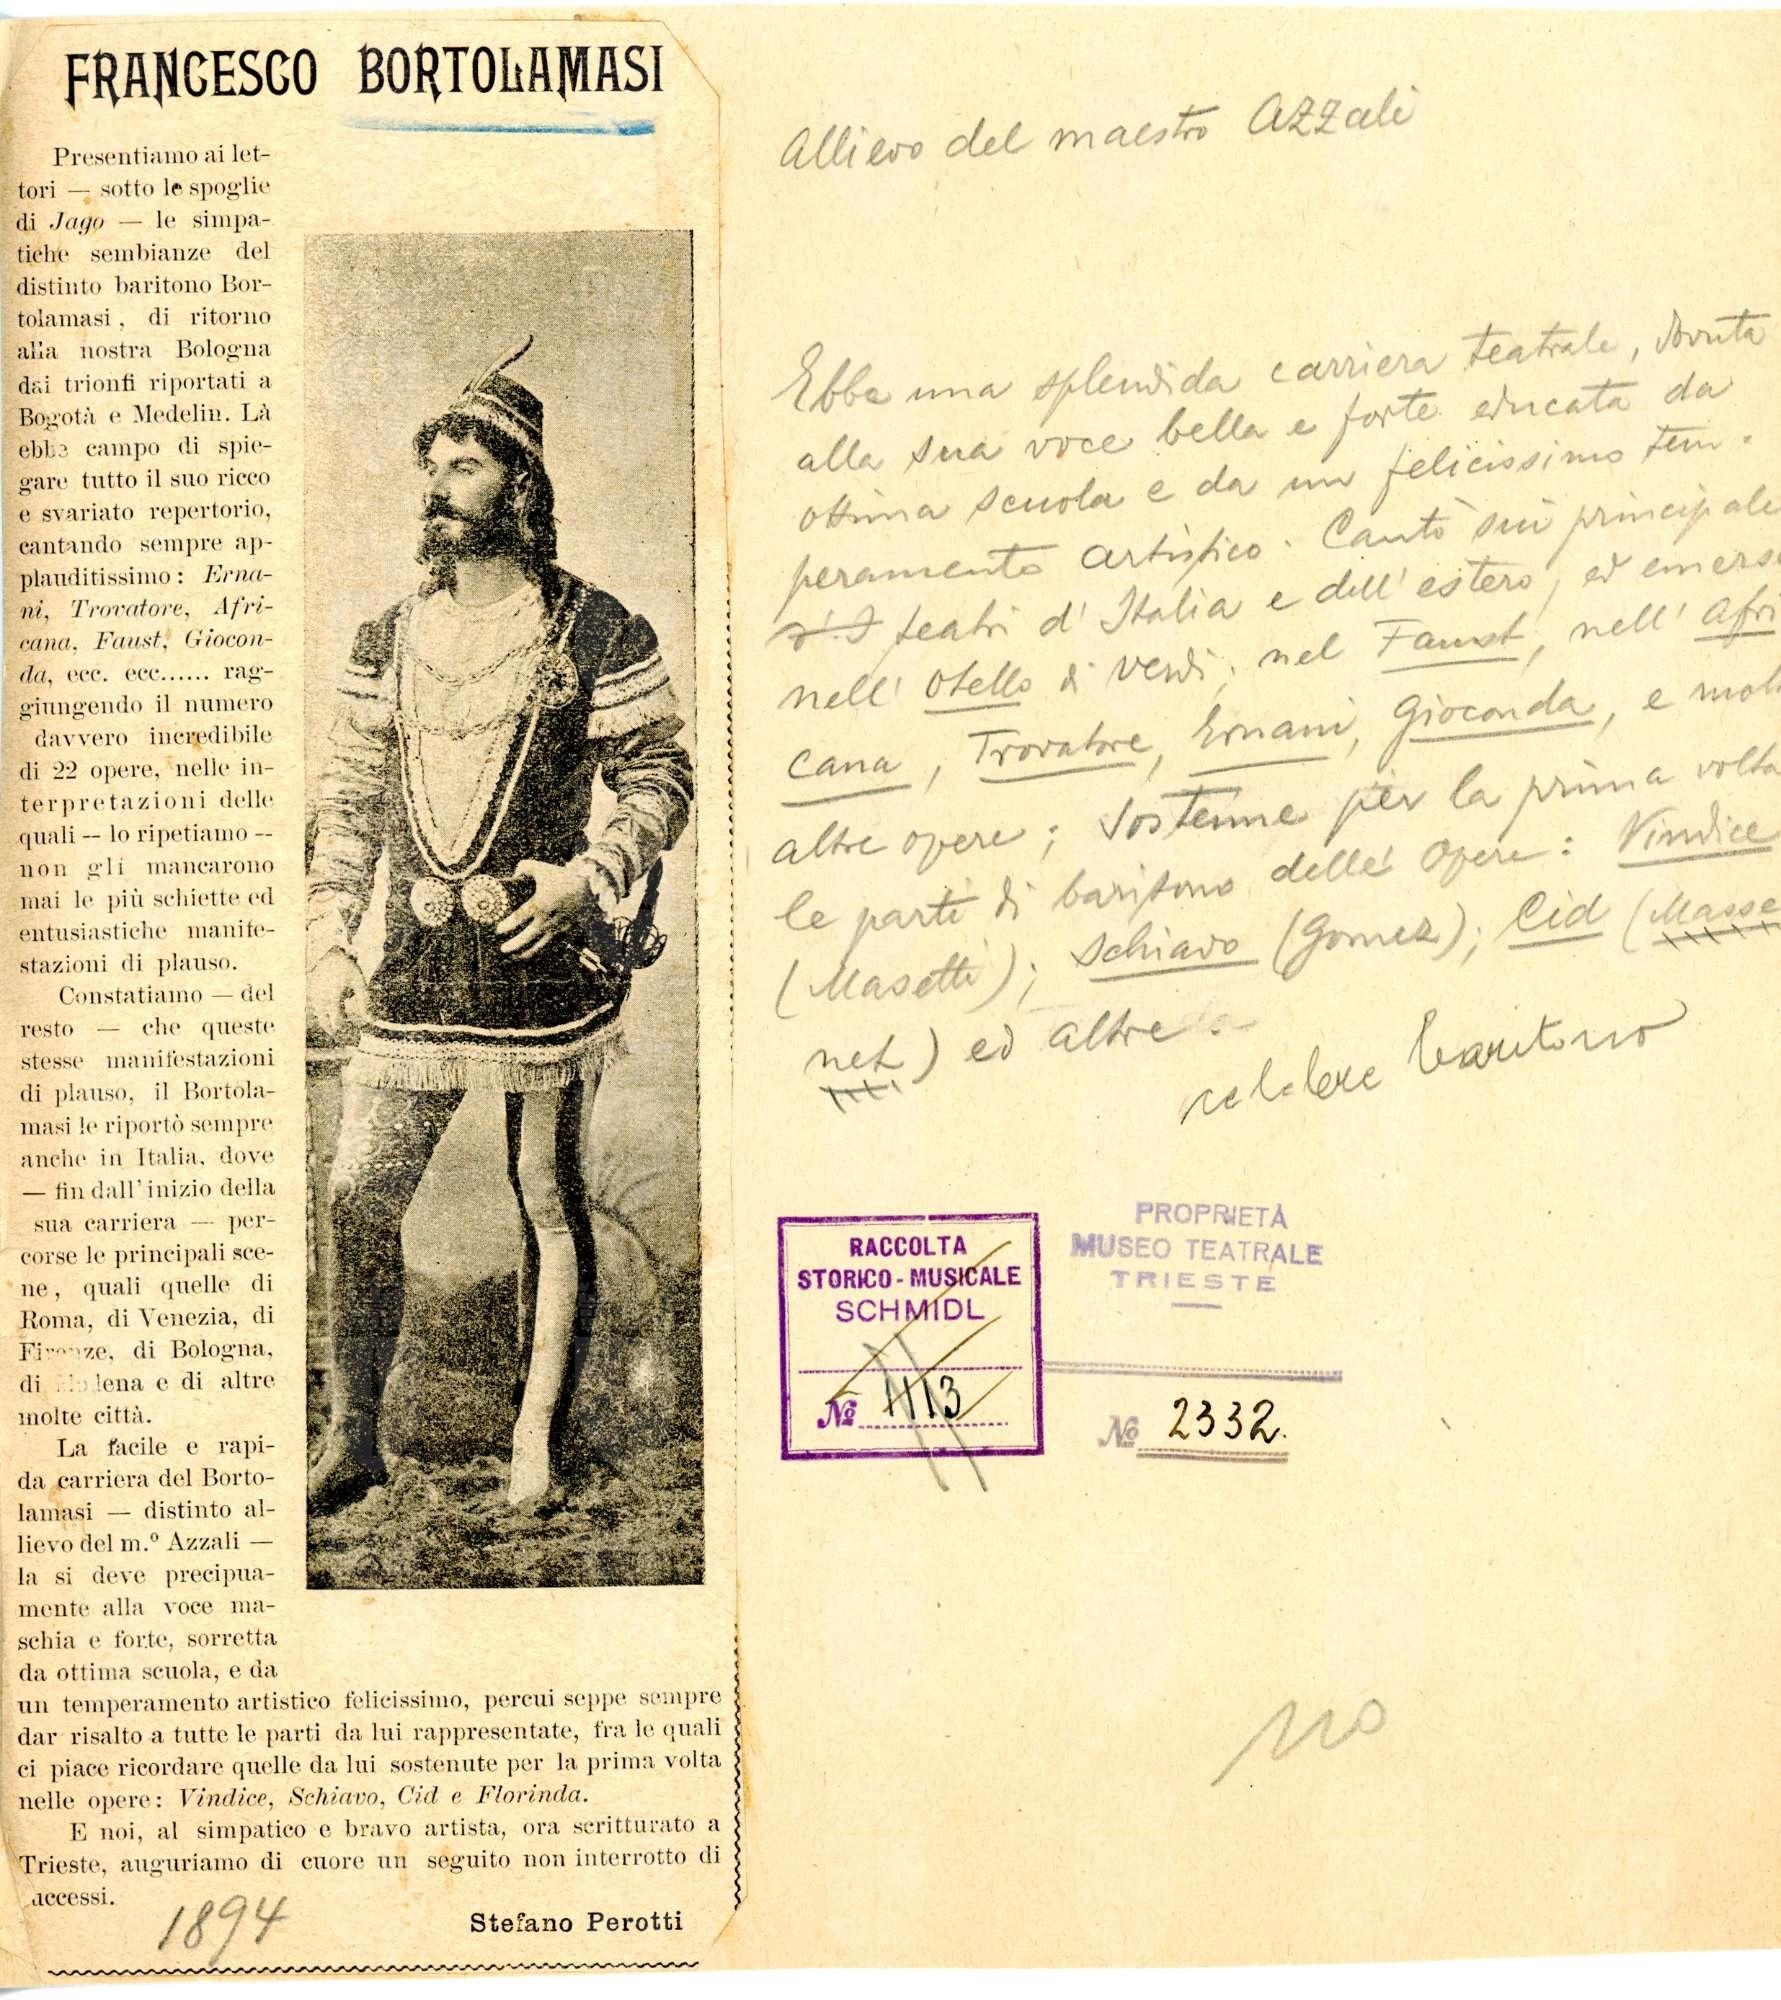 FRANCESCO BORTOLAMASI
Presentiamo ai let-
tori — sotto le spoglie
di Jago — le simpa-
tiche sembianze del
distinto baritono Bor-
tolamasi, di ritorno
alla nostra Bologna
dai trionfi riportati a
Bogotà e Medelin. Là
ebbe campo di spie-
gare tutto il suo ricco
e svariato repertorio,
cantando sempre ap-
plauditissimo: Erna-
ni, Trovatore, Afri-
cana, Faust, Giocon-
da, ecc. ecc...... rag-
giungendo il numero
davvero incredibile
di 22 opere, nelle in-
terpretazioni delle
quali -- lo ripetiamo --
non gli mancarono
mai le più schiette ed
entusiastiche manife-
stazioni di plauso.
Constatiamo — del
resto — che queste
stesse manifestazioni
di plauso, il Bortola-
masi le riportò sempre
anche in Italia, dove
— fin dall'inizio della
sua carriera — per-
corse le principali sce-
ne, quali quelle di
Roma, di Venezia, di
Firenze, di Bologna,
di Modena e di altre
molte città.
La facile e rapi-
da carriera del Borto-
lamasi — distinto al-
lievo del m.º Azzali —
la si deve precipua-
mente alla voce ma-
schia e forte, sorretta
da ottima scuola, e da
un temperamento artistico felicissimo, percui seppe sempre
dar risalto a tutte le parti da lui rappresentate, fra le quali
ci piace ricordare quelle da lui sostenute per la prima volta
nelle opere: Vindice, Schiavo, Cid e Florinda.
E noi, al simpatico e bravo artista, ora scritturato a
Trieste, auguriamo di cuore un seguito non interrotto di
accessi.
1894
Stefano Perotti
Allievo del maestro Azzali
Ebbe una splendida carriera teatrale, dovuta
alla sua voce bella e forte educata da
ottima scuola e da un felicissimo tem-
peramento artistico. Cantò sui principali
teatri d'Italia e dell'estero, ed emerse
nell'Otello di Verdi, nel Faust, nell'Afri
cana, Trovatore, Ernani, Gioconda, e molte
altre opere; sostenne per la prima volta
le parti di baritono delle opere: Vindice
(Masetti); Schiavo (Gomez); Cid (Masse
net) ed altre.
celebre baritono
RACCOLTA
STORICO-MUSICALE
SCHMIDL
No 1113
PROPRIETÀ
MUSEO TEATRALE
TRIESTE
No 2332.
no